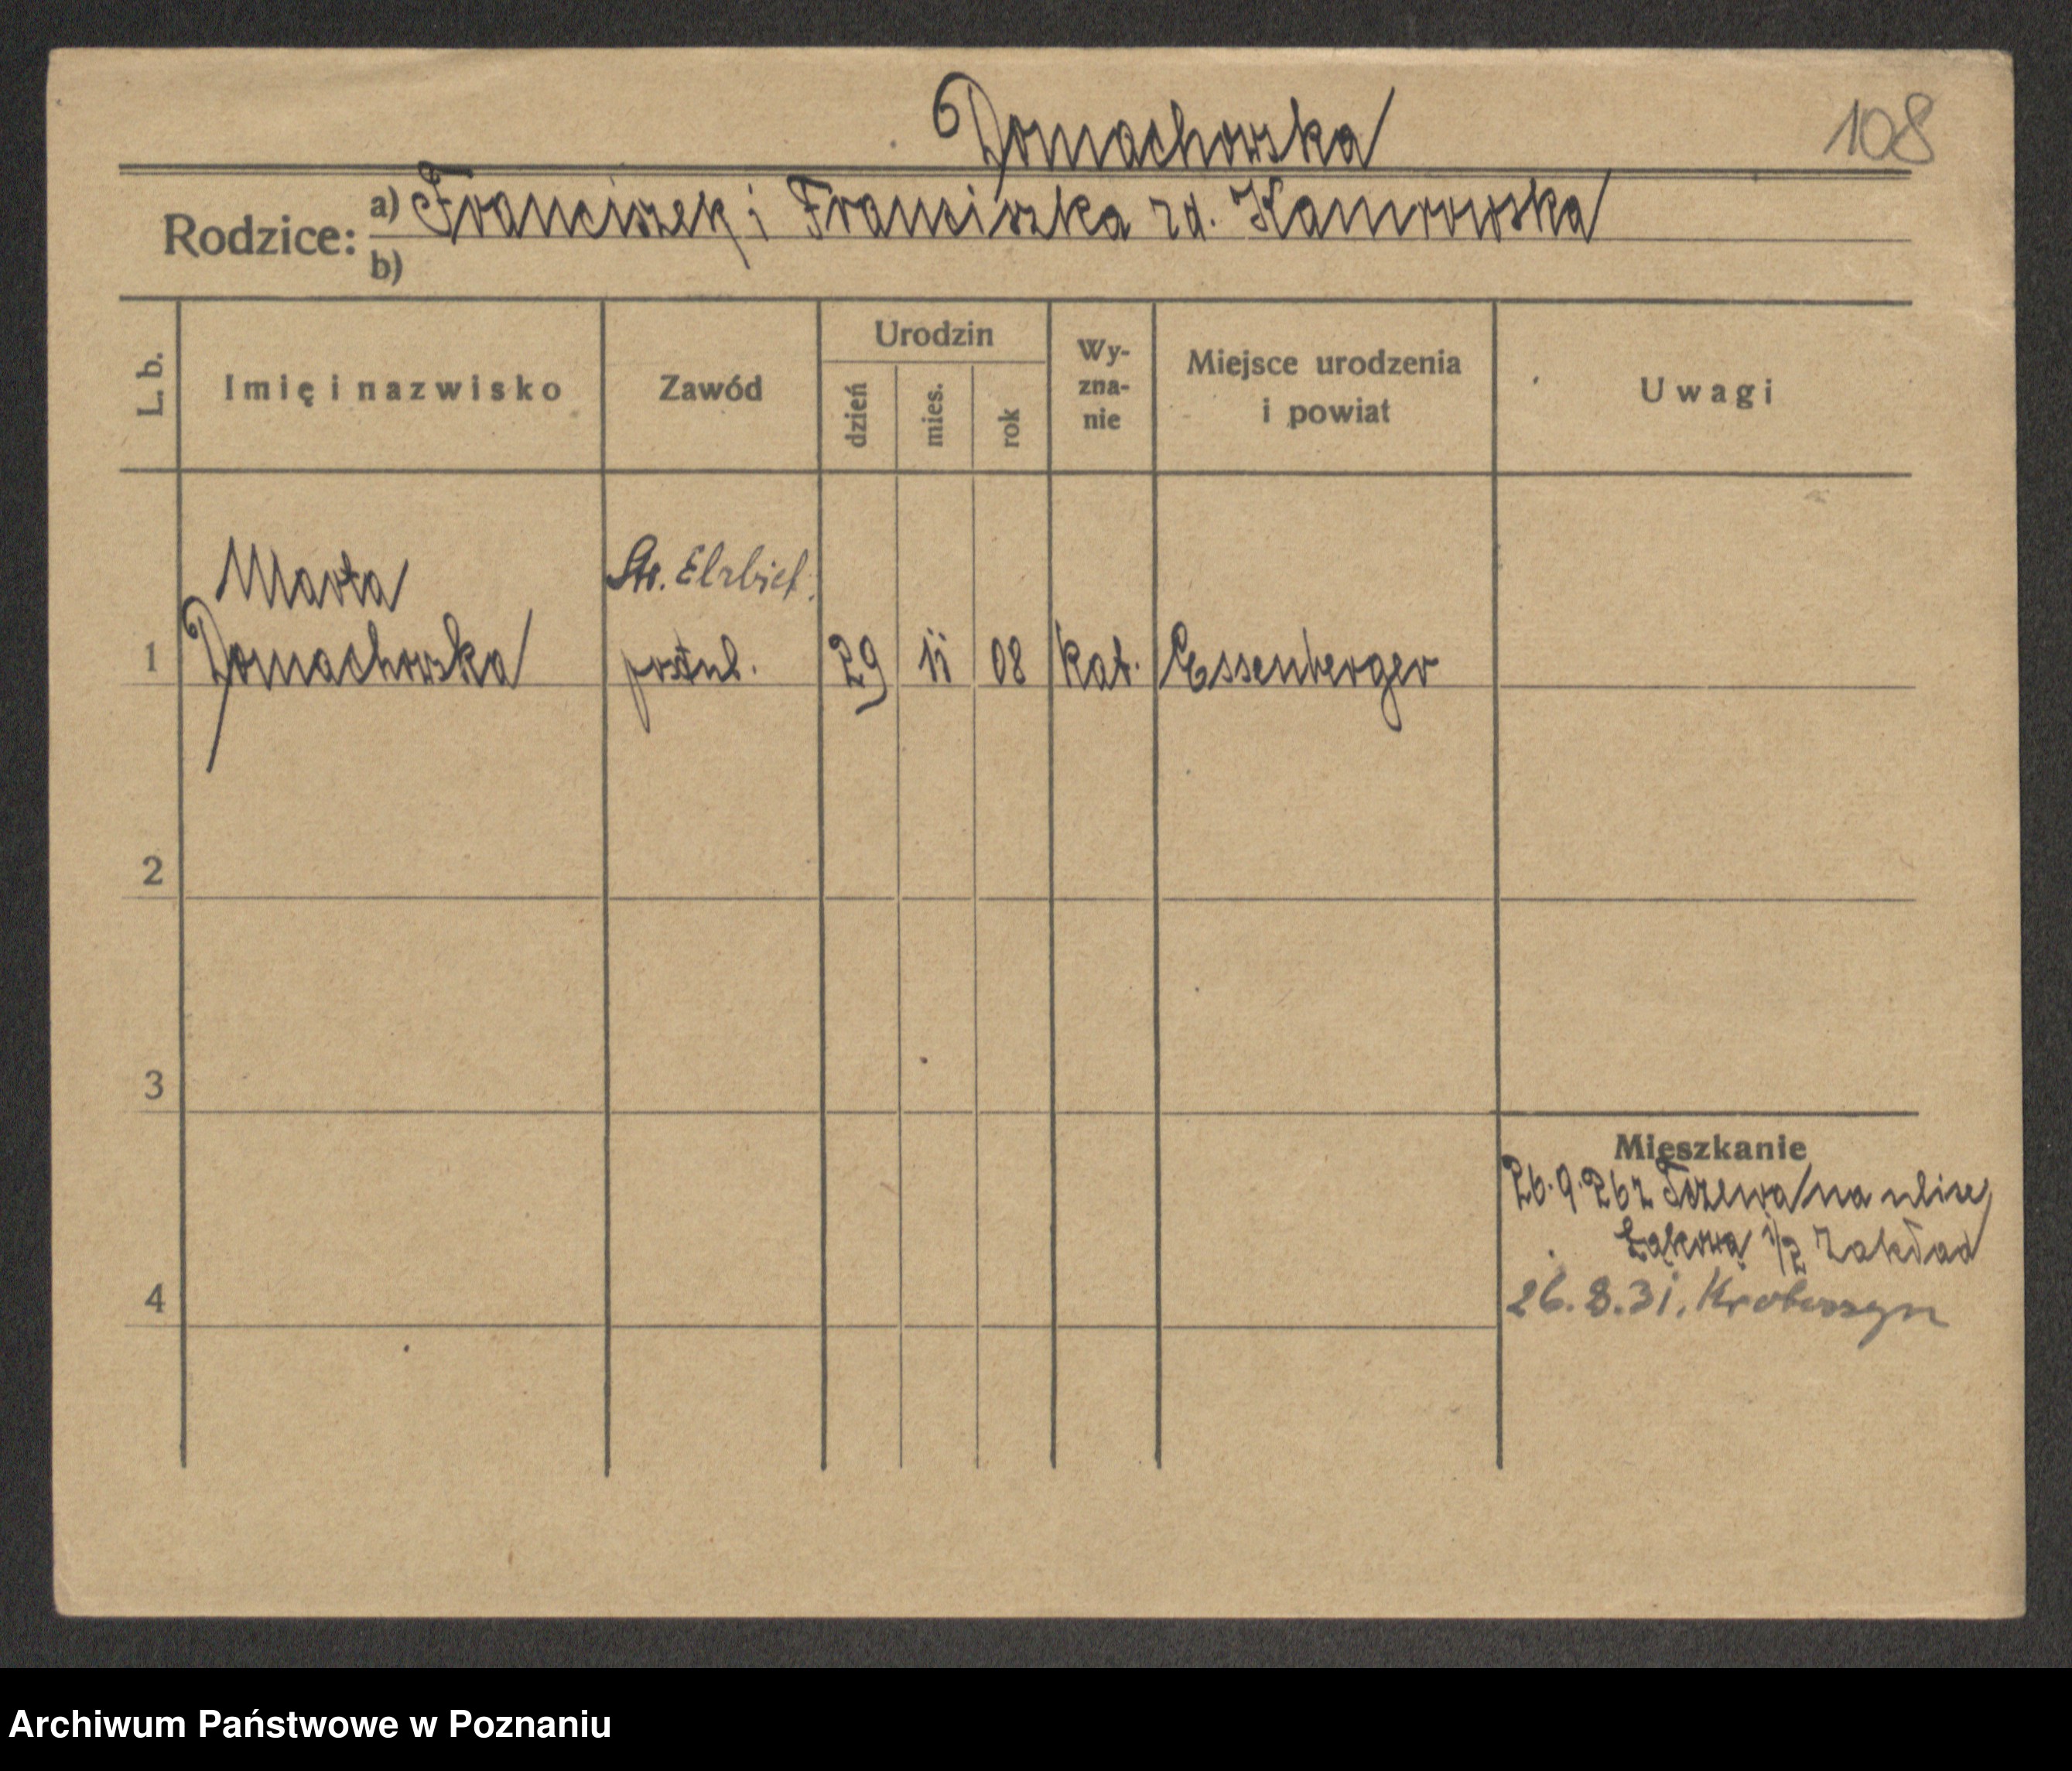 Domachowska
108
Rodzice: a) Franciszek i Franciszka zd. Kamrowska
b)
L. b. Imię i nazwisko Zawód Urodzin dzień mies. rok Wy-zna-nie Miejsce urodzenia i powiat Uwagi
Marta
Str. Elżbiet.
1 Domachowska postul. 29 11 08 kat. Essenberger
2
3
Mieszkanie
26.9.26 z Tczewa na ulicę
Łąkową 1/2 zakład
26.8.31. Krotoszyn
4
Archiwum Państwowe w Poznaniu